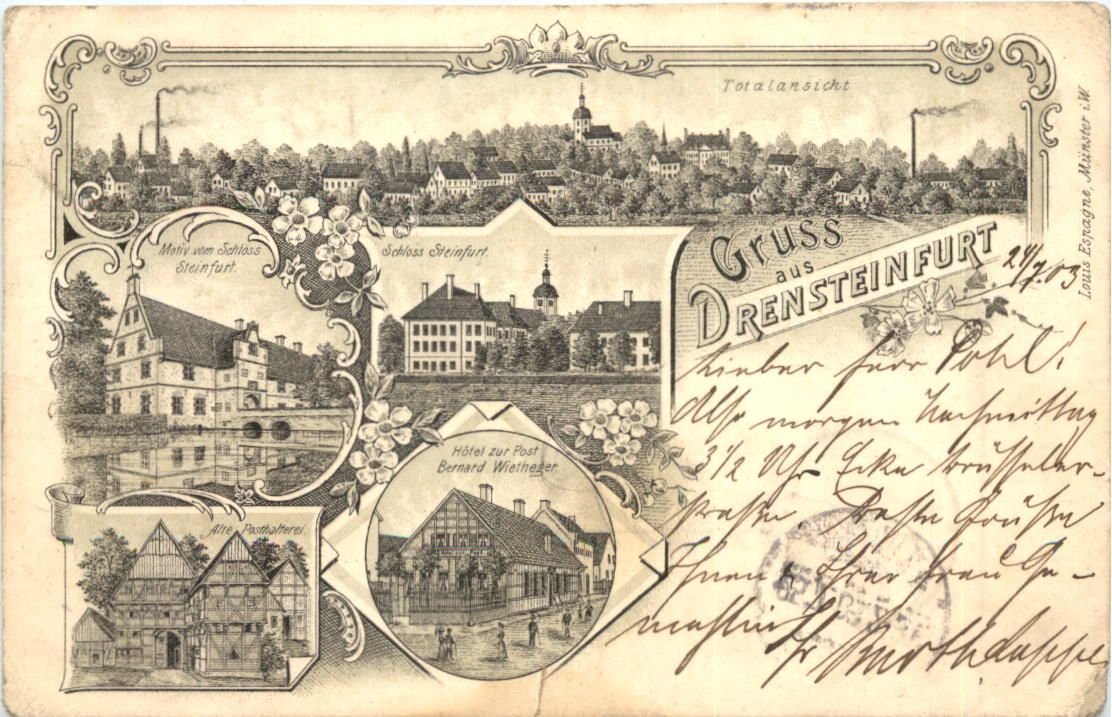 Totalansicht
Motiv vom Schloss
Steinfurt.
Schloss Steinfurt.
Gruss
aus
DRENSTEINFURT
Louis Espagne, Münster i. W
Hôtel zur Post
Bernard Wietheger.
Alte Posthalterei.
24/7.03
Lieber Herr Pohl!
Also morgen Nachmittag
3 1/2 Uhr Ecke Brüsseler-
straße. Beste Grüße
Ihnen & Ihrer Frau Ge-
mahlin Ihr